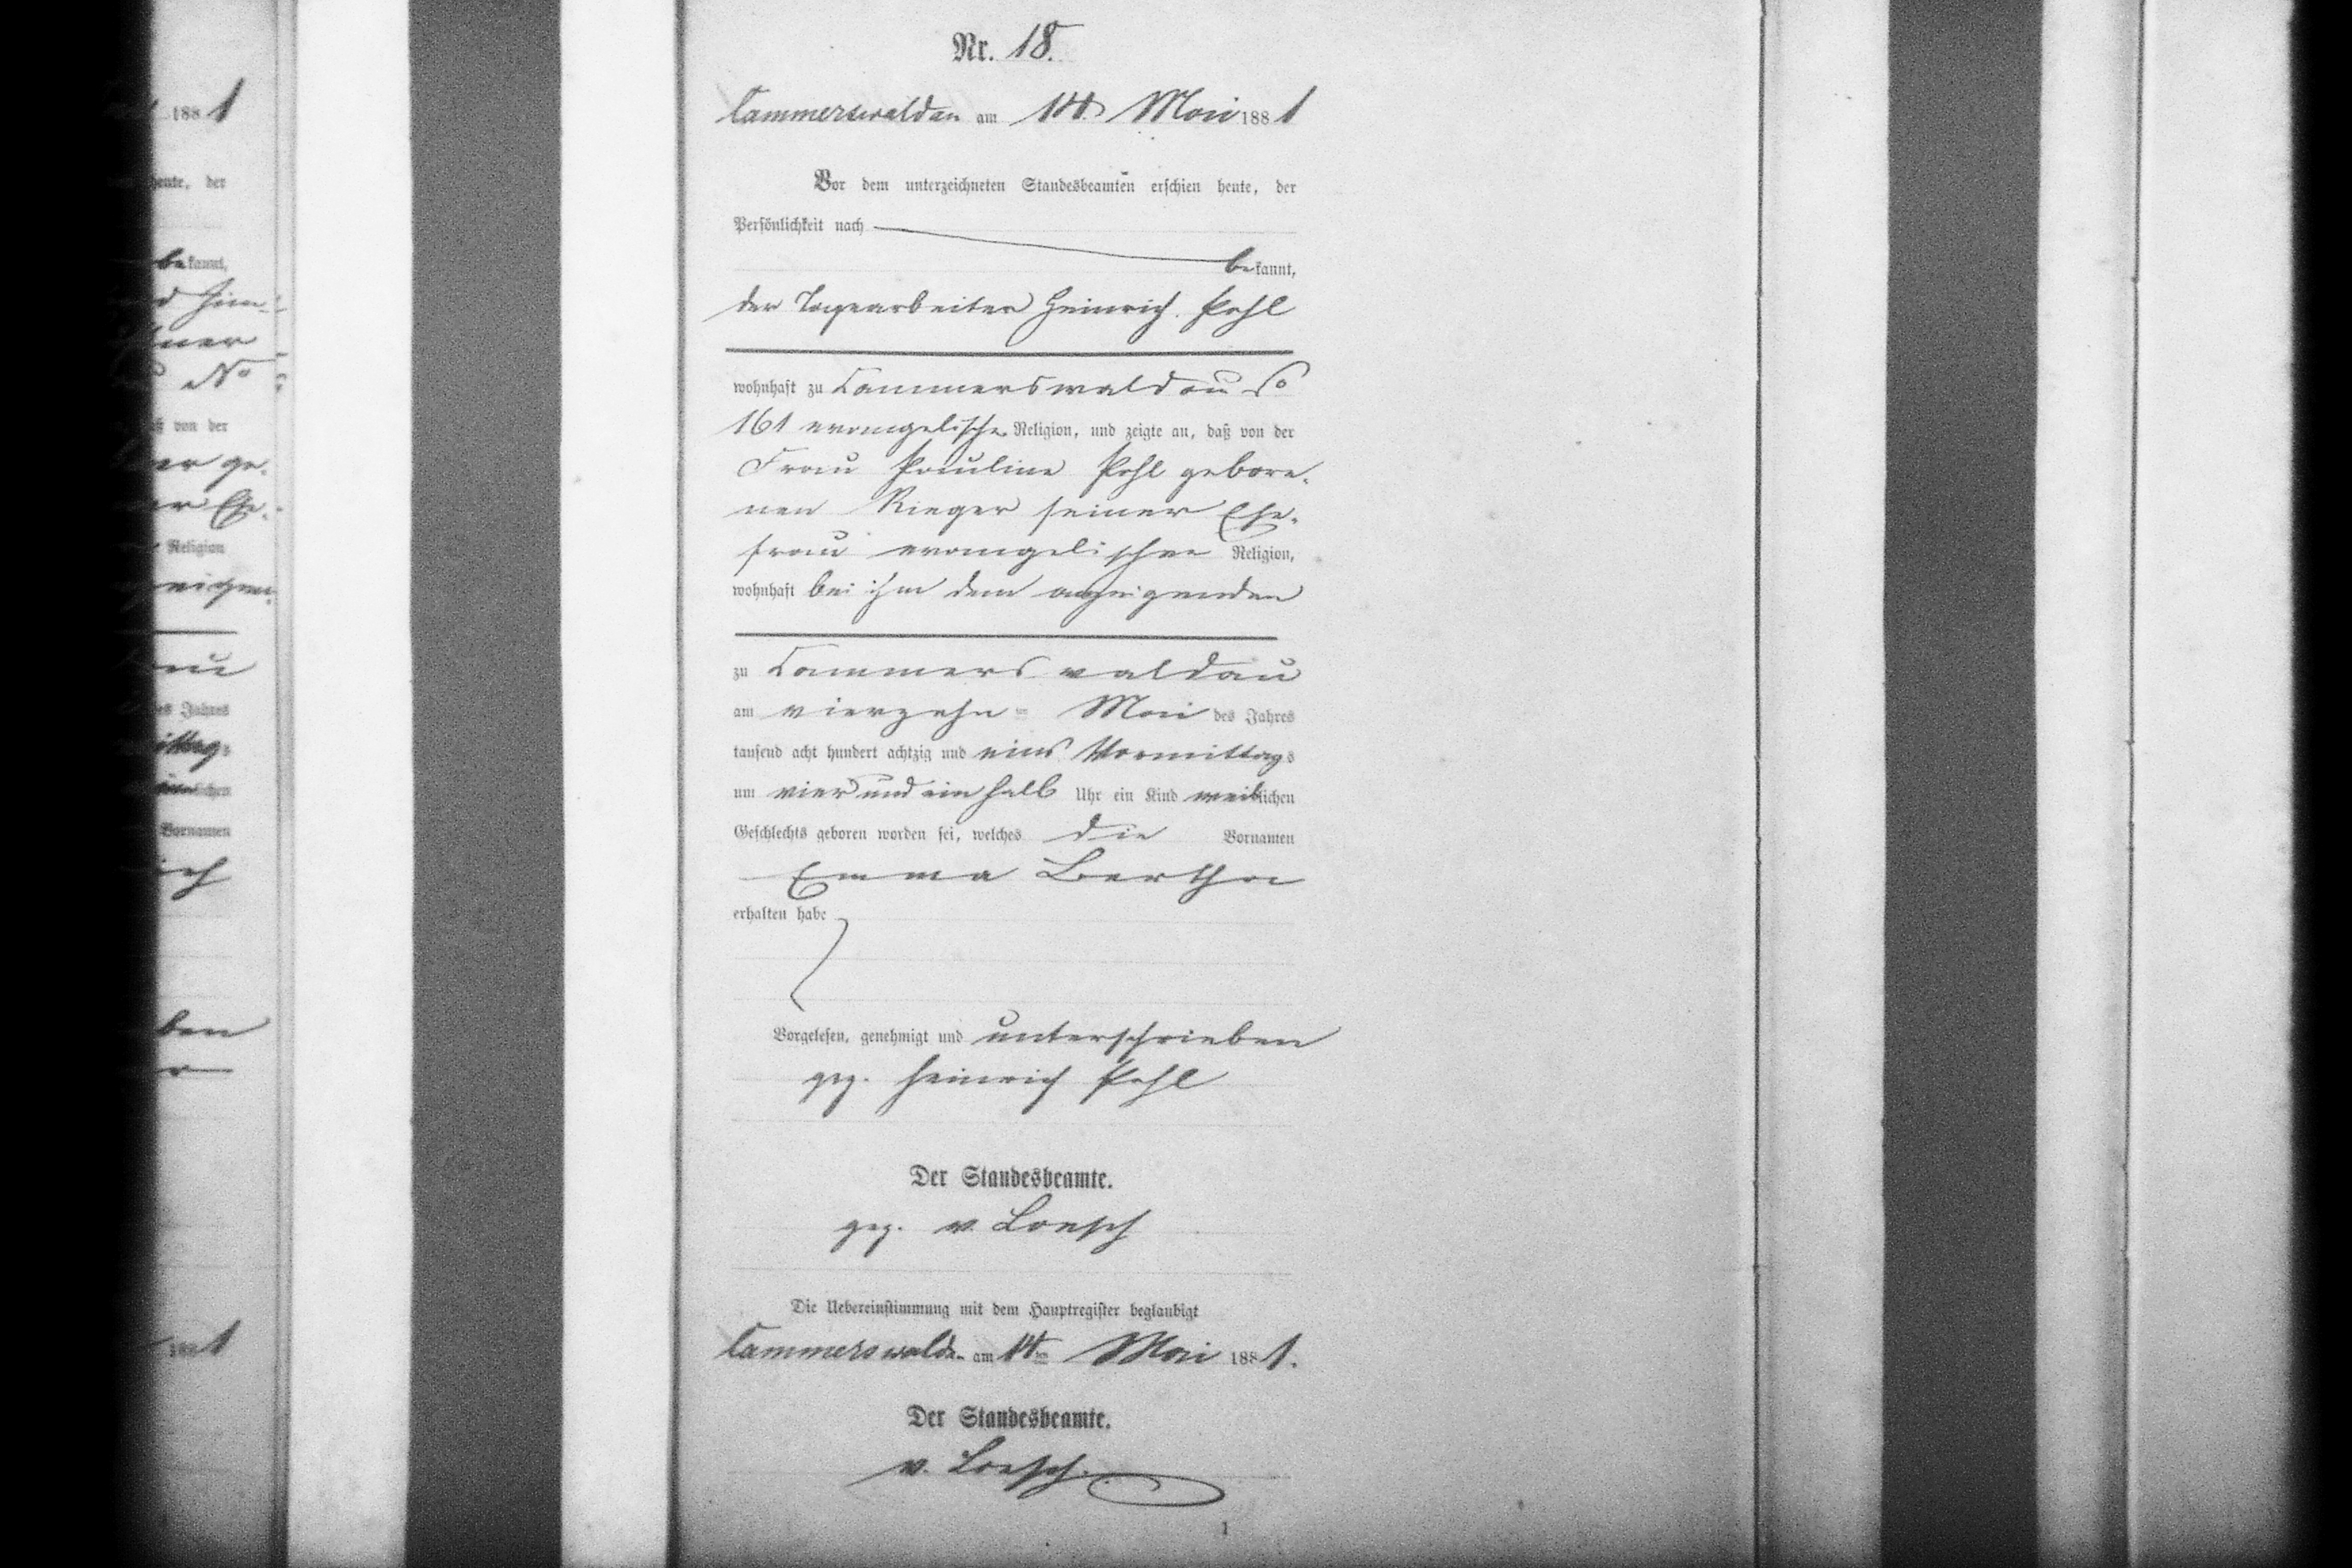 Nr. 18.
Cammerswaldau am 14. Mai 1881
Vor dem unterzeichneten Standesbeamten erschien heute, der
Persönlichkeit nach
bekannt,
der Tagearbeiter Heinrich Pohl
wohnhaft zu Cammerswaldau No
161 evangelischer Religion, und zeigte an, daß von der
Frau Pauline Pohl gebore-
nen Rieger seiner Ehe-
frau evangelischer Religion,
wohnhaft bei ihm dem anzeigenden
zu Cammerswaldau
am vierzehn ten Mai des Jahres
tausend acht hundert achtzig und eins Vormittags
um vier und ein halb Uhr ein Kind weiblichen
Geschlechts geboren worden sei, welches die Vornamen
Emma Bertha
erhalten habe
Vorgelesen, genehmigt und unterschrieben
gez. Heinrich Pohl
Der Standesbeamte.
gez. v. Loesch
Die Uebereinstimmung mit dem Hauptregister beglaubigt
Cammerswaldau am 14ten Mai 1881.
Der Standesbeamte.
v. Loesch.
1
1881
heute, der
bekannt,
No
von der
Religion
des Jahres
lichen
Vornamen
ben
1